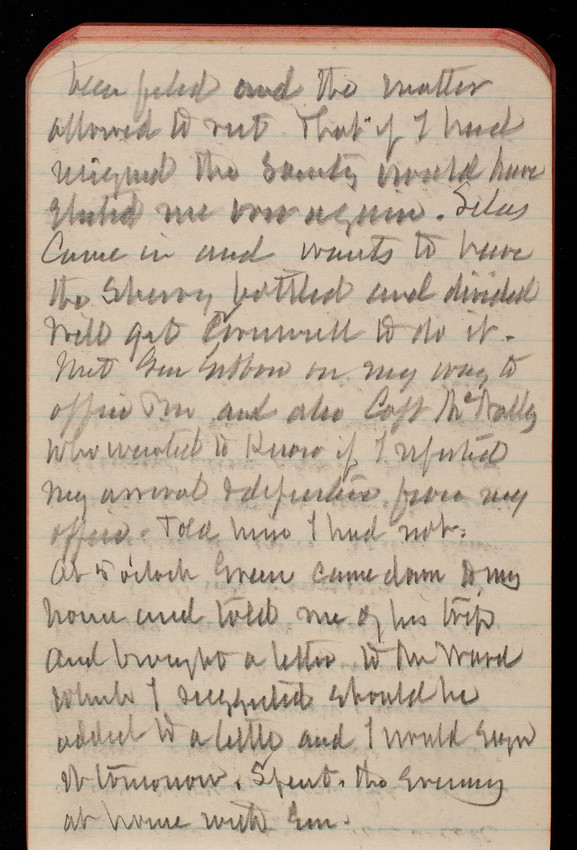 been filed and the matter
allowed to rest. That if I had
resigned the Society would have
elected me over again. Silas
came in and wants to have
the Sherry bottled and divided
Will get Cornwell to do it.
Met Gen Gibbon on my way to
office and also Capt McNally
who wanted to know if I reported
my arrival & departure from my
office. Told him I had not.
At 5 oclock Green came down to my
home and told me of his trip
and brought a letter to Mr Ward
which I suggested should be
added to a letter and I would sign
it tomorrow. Spent the evening
at home with Em.